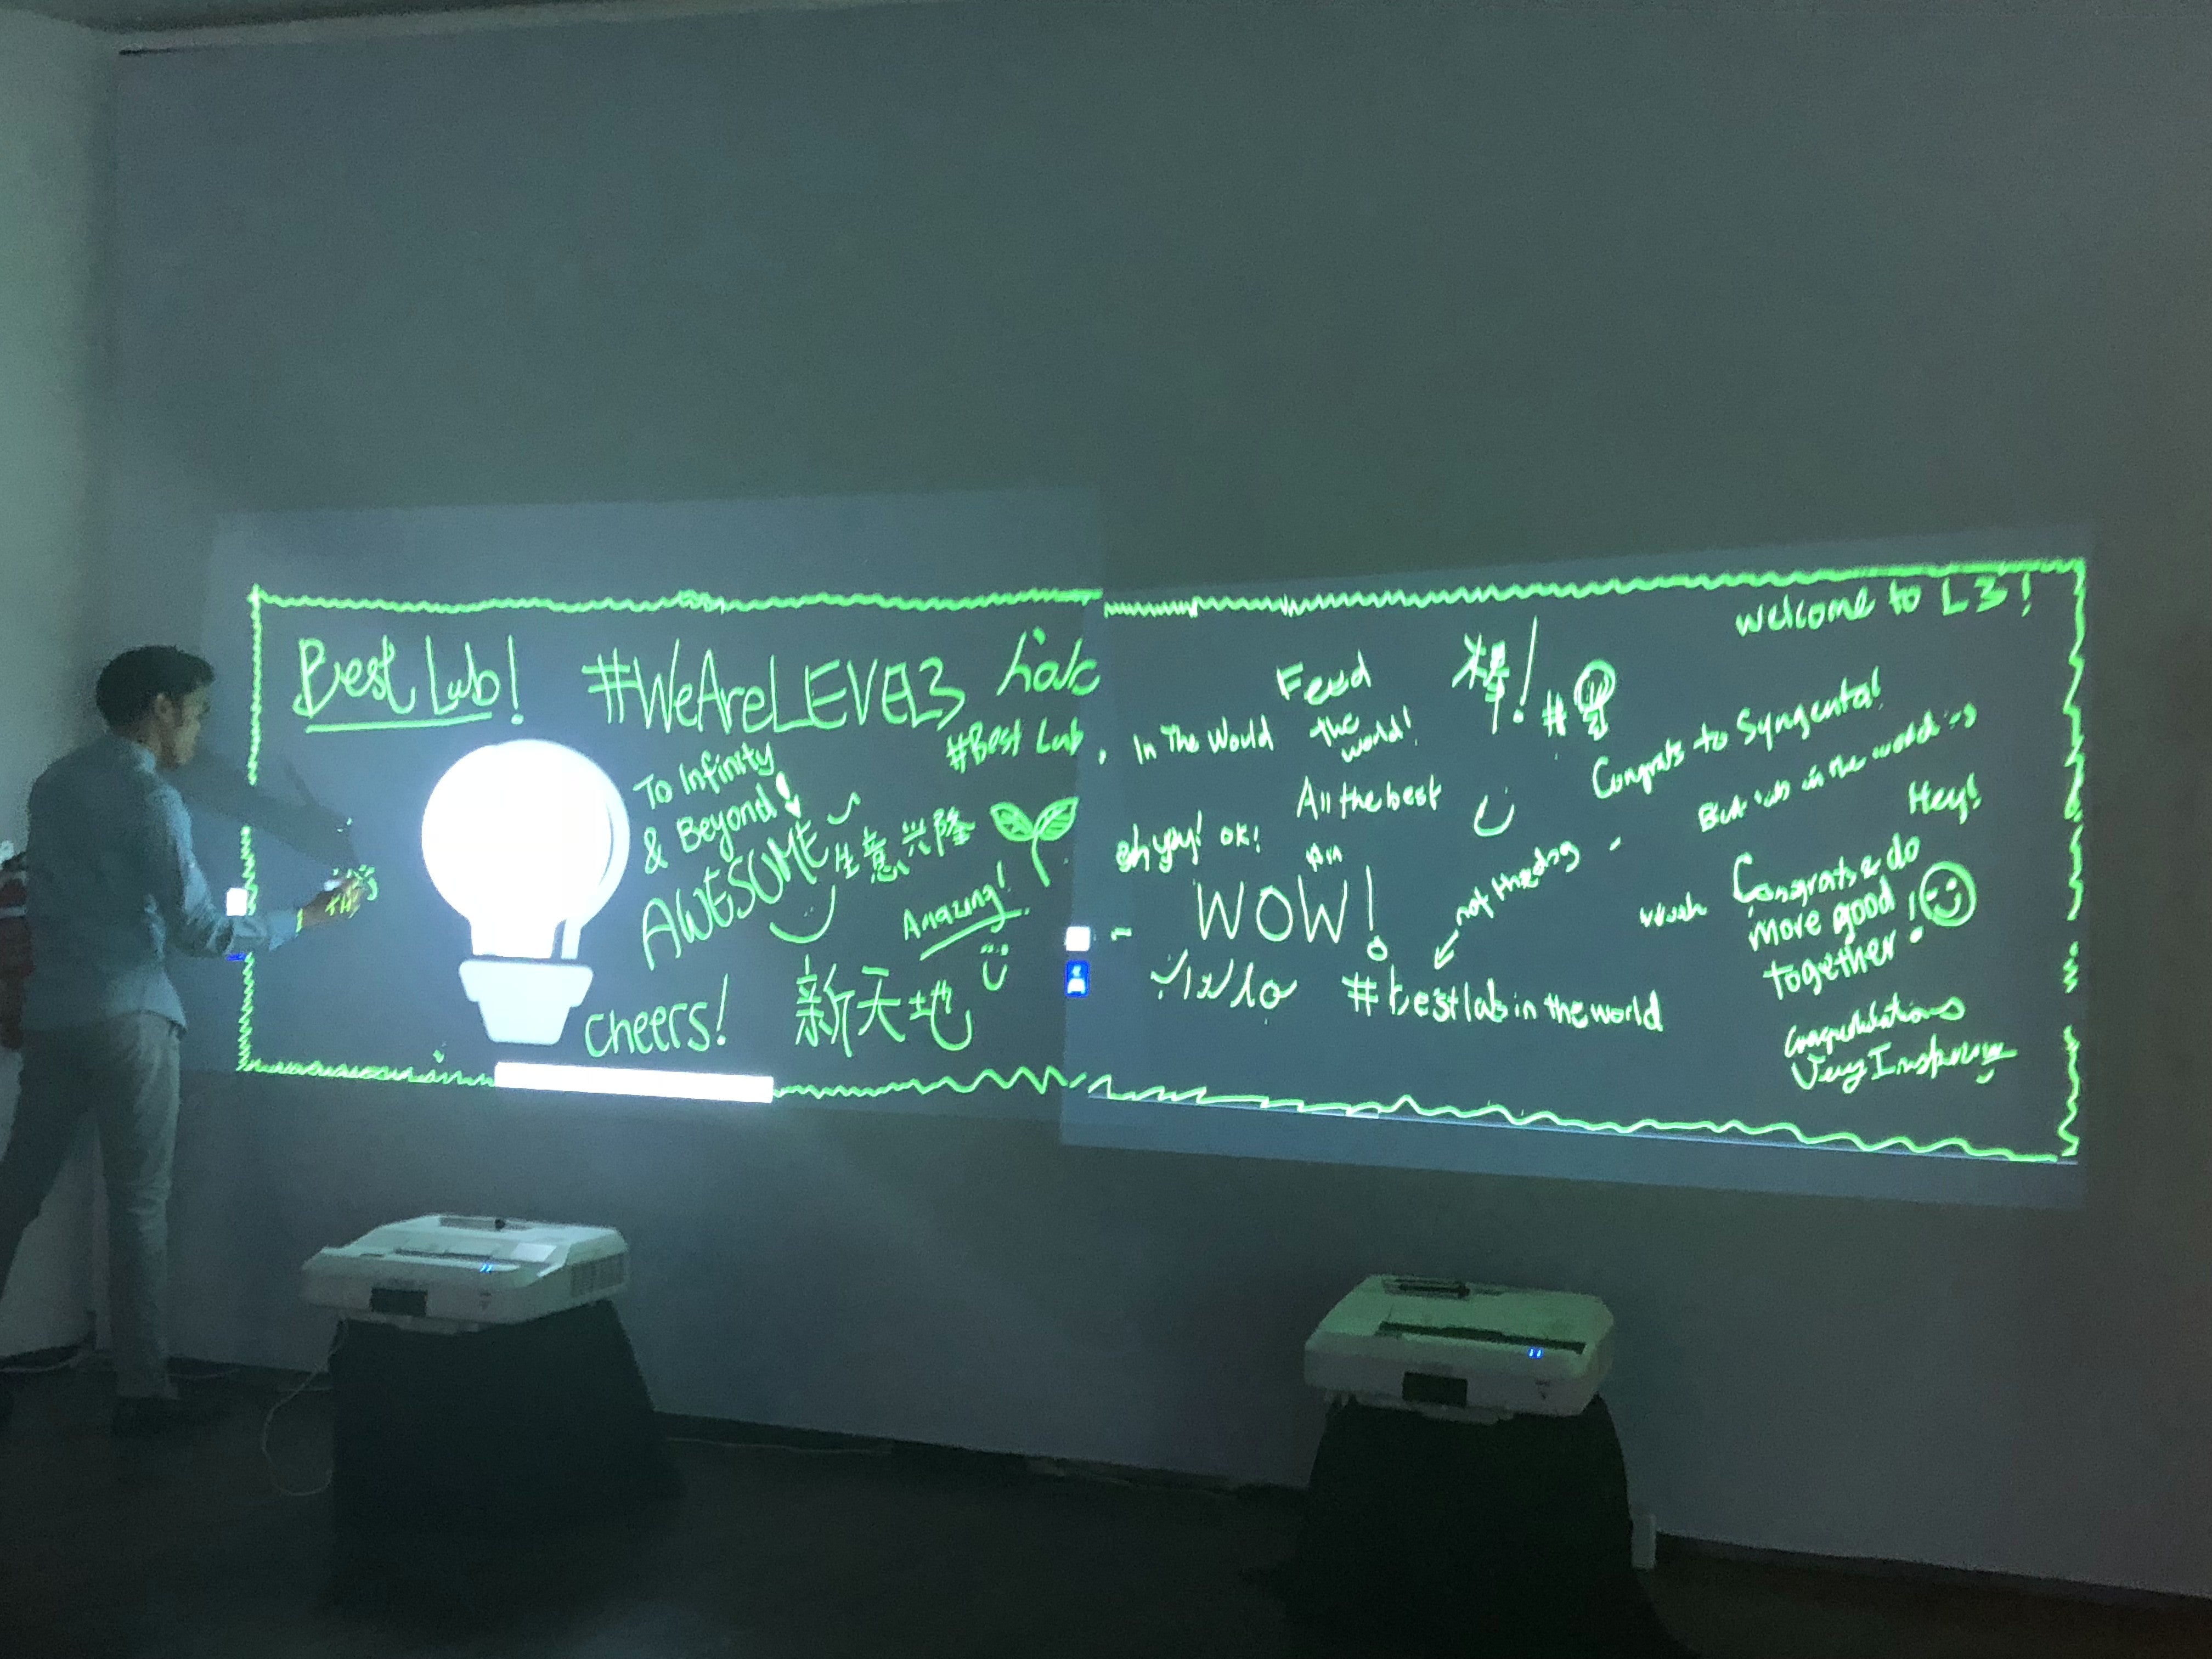 Best Lab!
#WeAreLEVEL3
#Best Lab, In The World
To Infinity
& Beyond!
AWESOME
生意兴隆
Amazing!
cheers!
新天地
Feed
the
world!
棒!
#
welcome to L3!
Congrats to Syngenta!
in the world
All the best
oh yay! ok!
WOW!
Hey!
Congrats & do
more good
together!
not
#bestlab in the world
Congratulations
Very